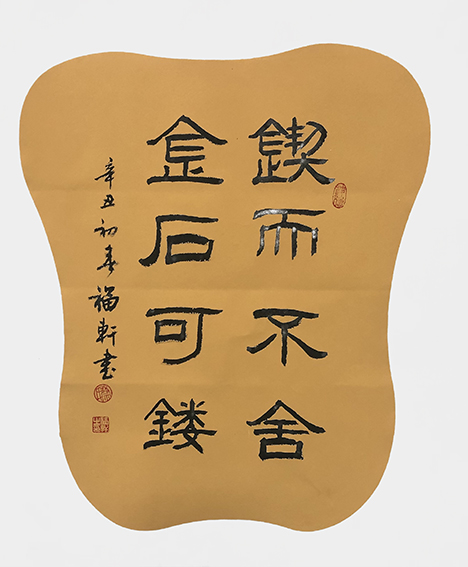 鍥而不舍
金石可镂
辛丑初春福軒书